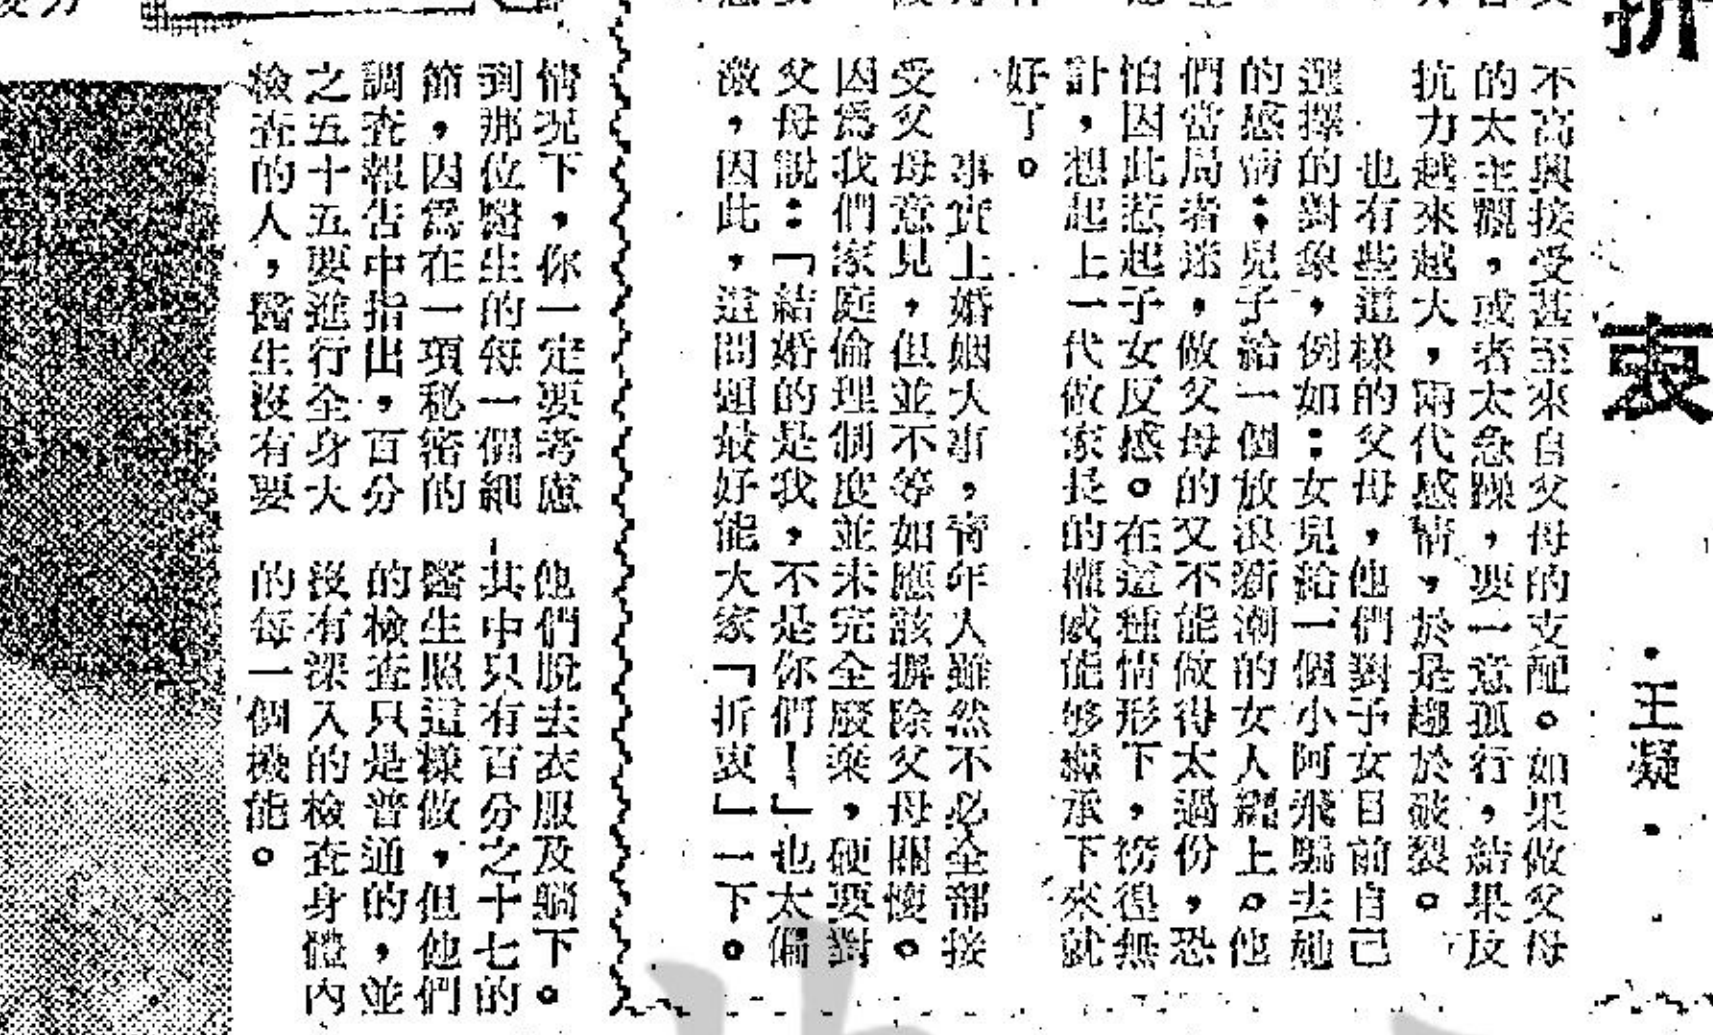 折衷
·王凝·
不高興接受甚至來自父母的支配。如果做父母
的太主觀，或者太急躁，要一意孤行，結果反
抗力越來越大，兩代感情，於是趨於破裂。
也有些這樣的父母，他們對子女目前自己
選擇的對象，例如：女兒給一個小阿飛騙去她
的感情；兒子給一個放浪新潮的女人纏上。他
們當局者迷，做父母的又不能做得太過份，恐
怕因此惹起子女反感。在這種情形下，徬徨無
計，想起上一代做家長的權威能够繼承下來就
好了。
事實上婚姻大事，青年人雖然不必全部接
受父母意見，但並不等如應該摒除父母關懷。
因爲我們家庭倫理制度並未完全廢棄，硬要對
父母說：「結婚的是我，不是你們！」也太偏
激，因此，這問題最好能大家「折衷」一下。
情況下，你一定要考慮
到那位醫生的每一個細
節，因爲在一項秘密的
調查報告中指出，百分
之五十五要進行全身大
檢查的人，醫生沒有要
他們脫去衣服及躺下。
其中只有百分之十七的
醫生照這樣做，但他們
的檢查只是普通的，並
沒有深入的檢查身體內
的每一個機能。